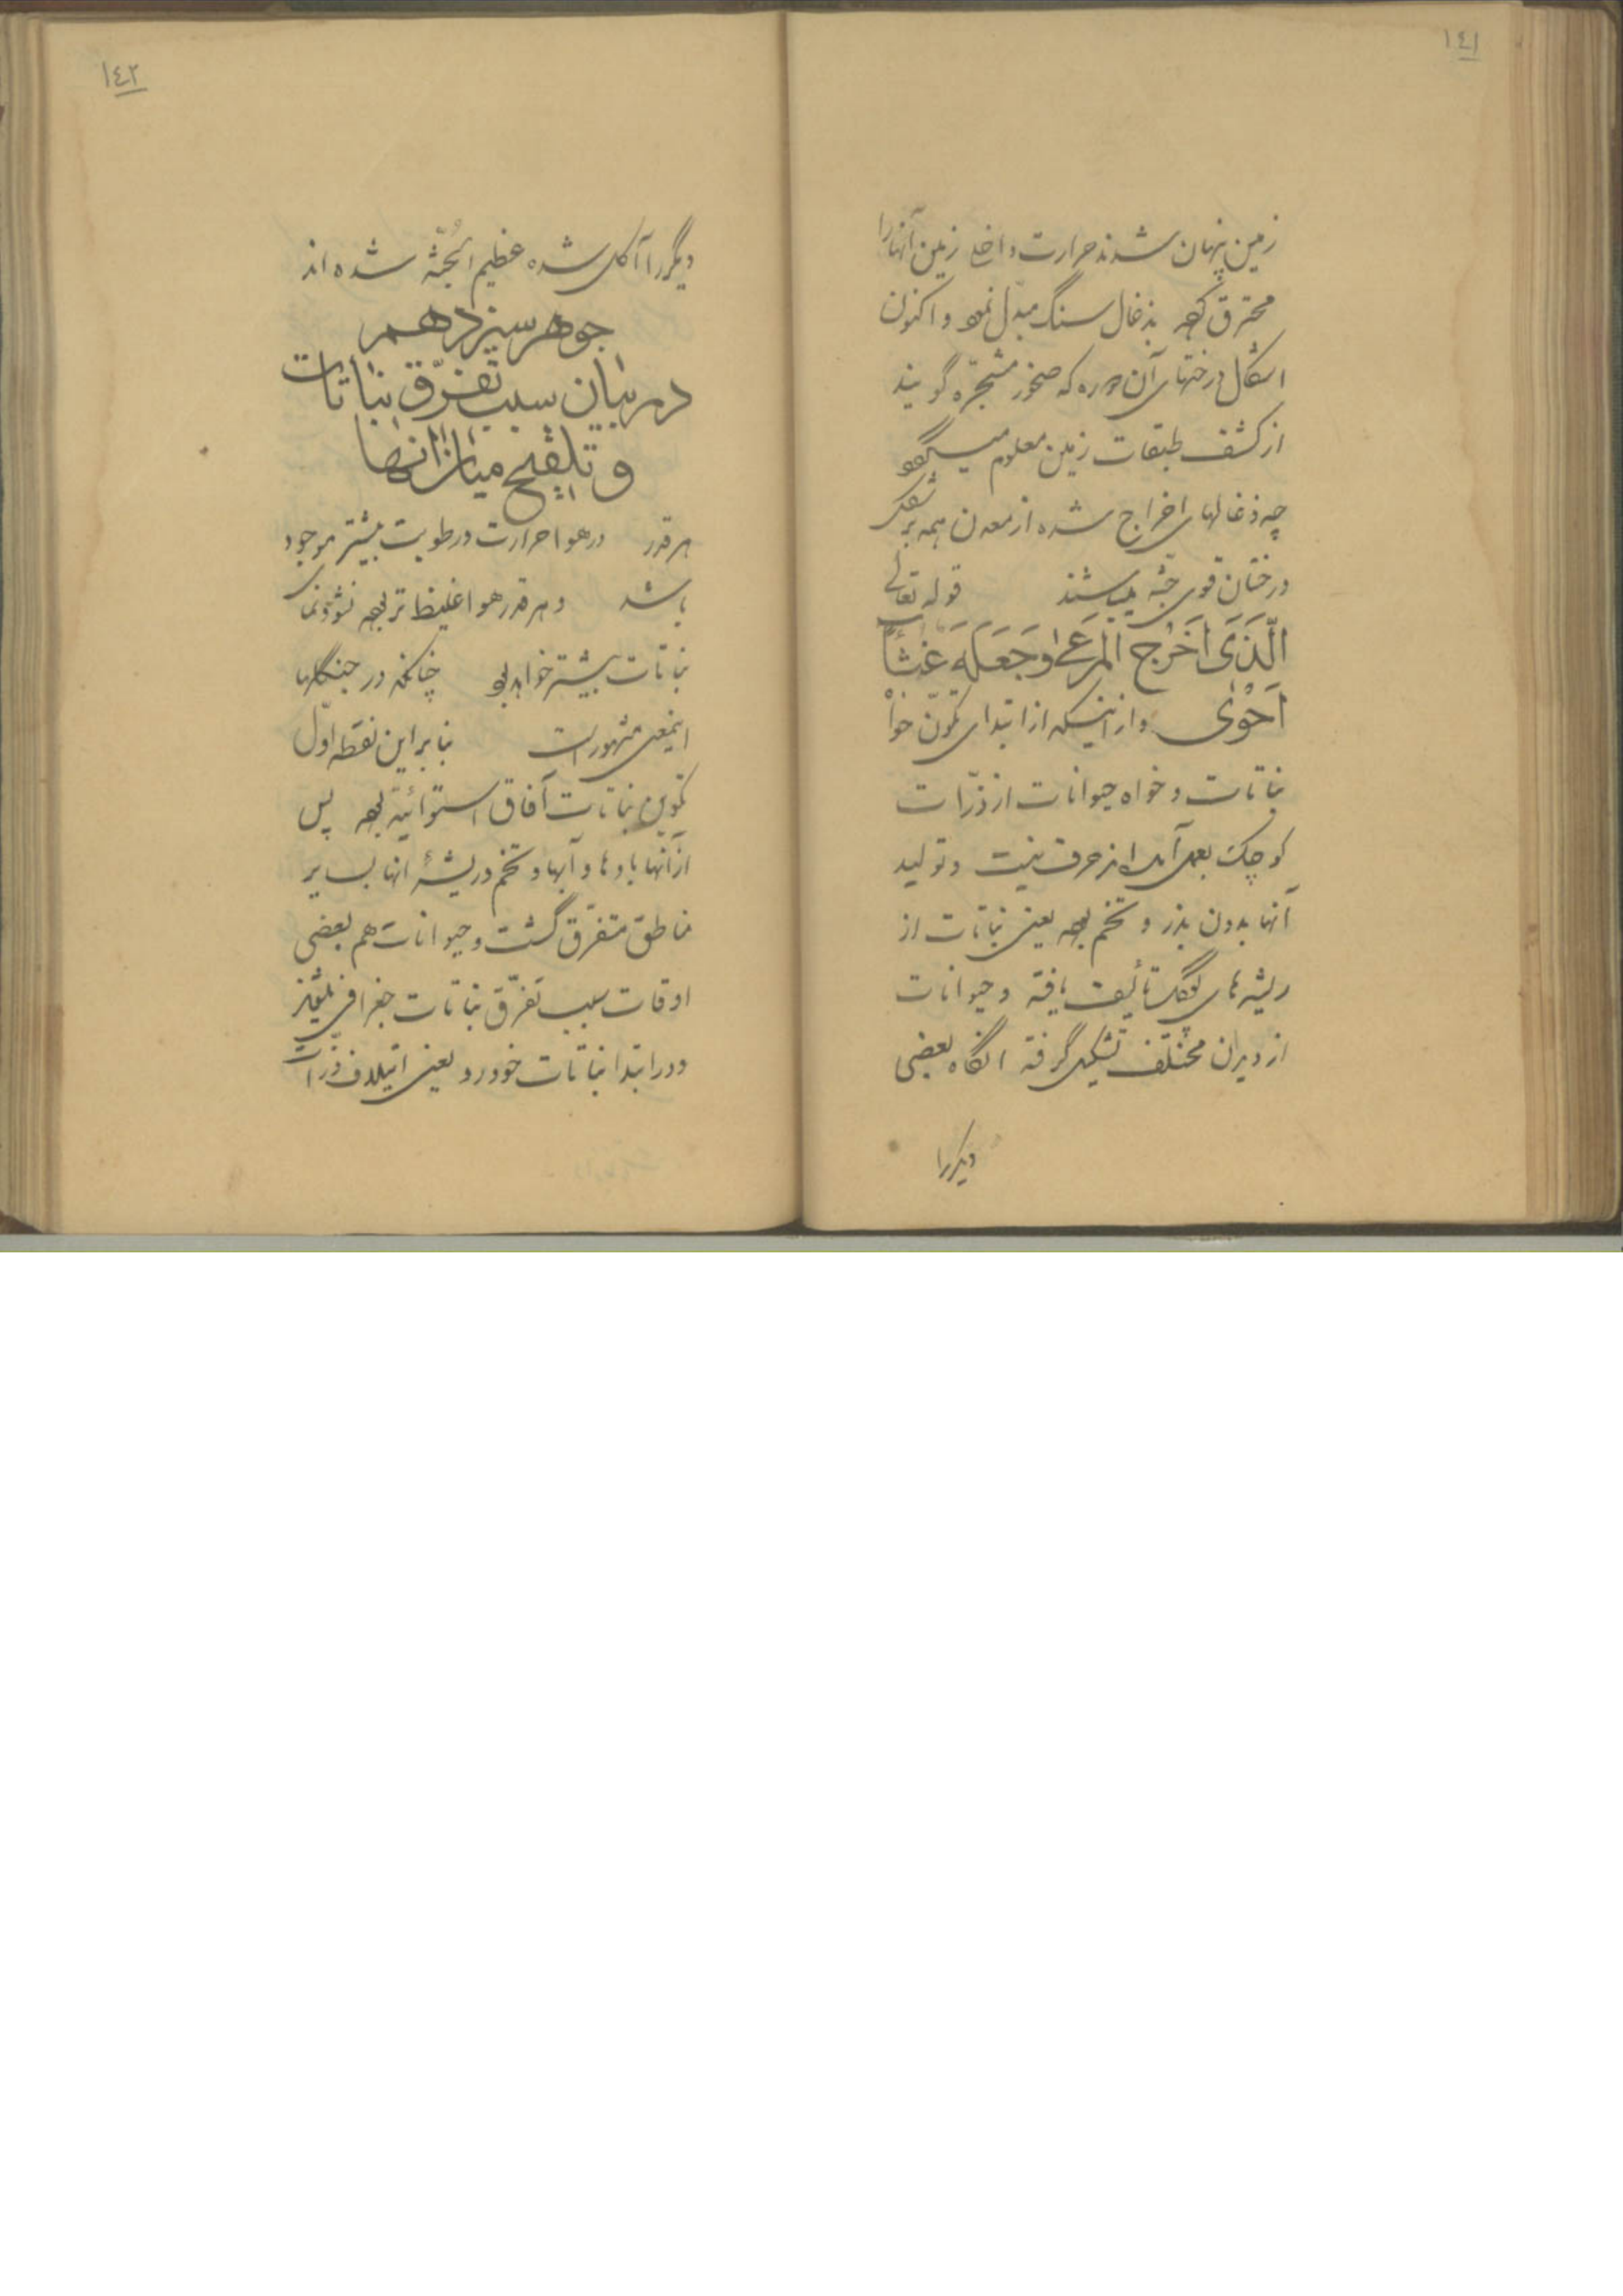 ١٤١
زمین پنهان شدند حرارت داخل زمین آنها را
محترق کرده بذغال سنگ مبدّل نمود و اکنون
اشکال درختهای آن دوره که صخور مشجّره گویند
از کشف طبقات زمین معلوم میگردد
چه ذغالهای اخراج شده از معدن همه بر شکل
درختان قوی جثّه میباشند قوله تعالی
الَّذَی اَخَرَجَ المَرعَی وَجَعَلَهَ غَثاً
اَحَوْی و از اینکه از ابتدای تکوّن خواه
نباتات و خواه حیوانات از ذرّات
کوچک بعمل آمدند حرف نیست و تولید
آنها بدون بذر و تخم بوده یعنی نباتات از
ریشه های تألیف یافته و حیوانات
از دیدان مختلف تشکیل گرفته انگاه بعضی
دیگررا
١٤٢
دیگررا آکل شده عظیم الجُثّه شده اند
جوهر سیزدهم
در بیان سبب تفرّق نباتات
و تلقیح میان انها
هر قدر در هوا حرارت و رطوبت بیشتر موجود
باشد و هر قدر هوا غلیظ تر بوده نشوونمای
نباتات بیشتر خواهد بود چنانکه در جنگلها
اینمعنی مشهور است بنابراین نقطه اوّل
تکوین نباتات آفاق استوائیّه بوده پس
از آنها بادها و آبها و تخم و ریشهٔ انها بسایر
مناطق متفرّق گشت و حیوانات هم بعضی
اوقات سبب تفرّق نباتات جغرافی میشوند
و در ابتدا نباتات خودرو یعنی ائتلاف ذرّات